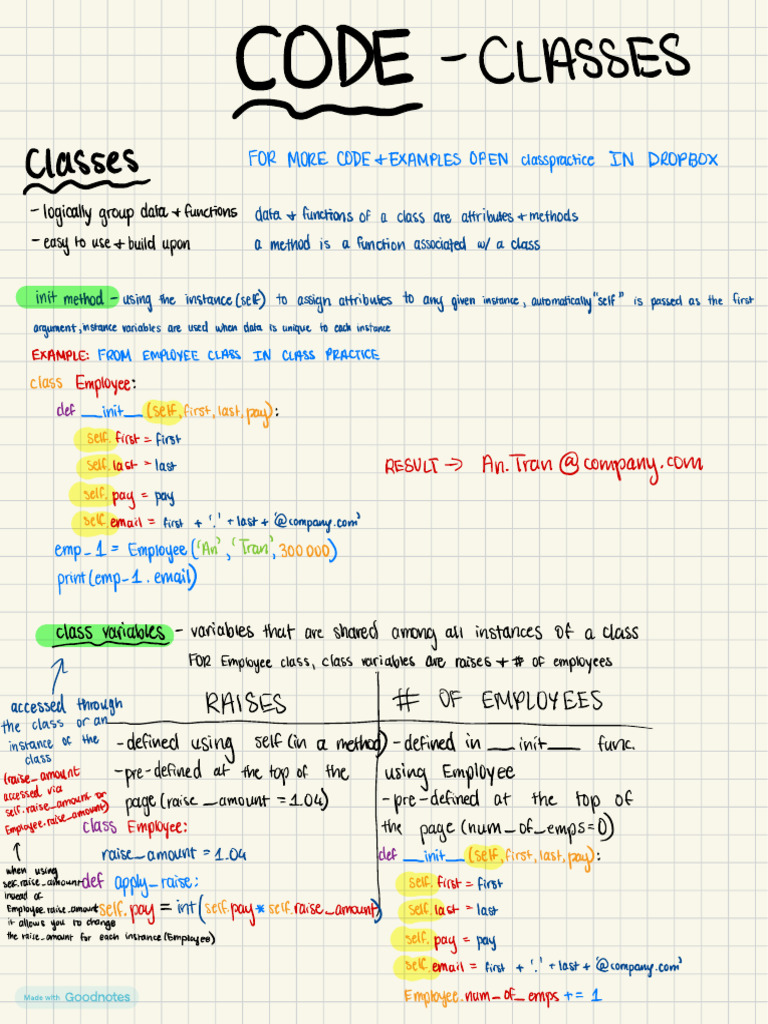 CODE - CLASSES
Classes
FOR MORE CODE + EXAMPLES OPEN classpractice IN DROPBOX
- logically group data + functions
- easy to use + build upon
data + functions of a class are attributes + methods
a method is a function associated w/ a class
init method - using the instance (self) to assign attributes to any given instance, automatically "self" is passed as the first
argument, instance variables are used when data is unique to each instance
EXAMPLE: FROM EMPLOYEE CLASS IN CLASS PRACTICE
class Employee:
def __init__ (self, first, last, pay):
self. first = first
self. last = last
self. pay = pay
self. email = first + '.' + last + '@company.com'
emp_1 = Employee ('An', 'Tran', 300 000)
print (emp_1. email)
RESULT → An.Tran @company.com
class variables - variables that are shared among all instances of a class
FOR Employee class, class variables are raises + # of employees
accessed through
the class or an
instance of the
class
(raise_amount
accessed via
self.raise_amount or
Employee.raise_amount)
when using
self.raise_amount
instead of
Employee.raise_amount
it allows you to change
the raise_amount for each instance (Employee)
RAISES
- defined using self (in a method)
- pre-defined at the top of the
page (raise_amount = 1.04)
class Employee:
raise_amount = 1.04
def apply_raise:
self.pay = int (self.pay * self.raise_amount)
# OF EMPLOYEES
- defined in __init__ func.
using Employee
- pre-defined at the top of
the page (num_of_emps=0)
def __init__ (self, first, last, pay):
self. first = first
self. last = last
self. pay = pay
self. email = first + '.' + last + '@company.com'
Employee.num_of_emps += 1
Made with Goodnotes